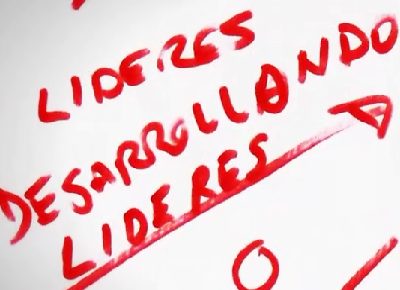 LIDERES
DESARROLLANDO
LIDERES